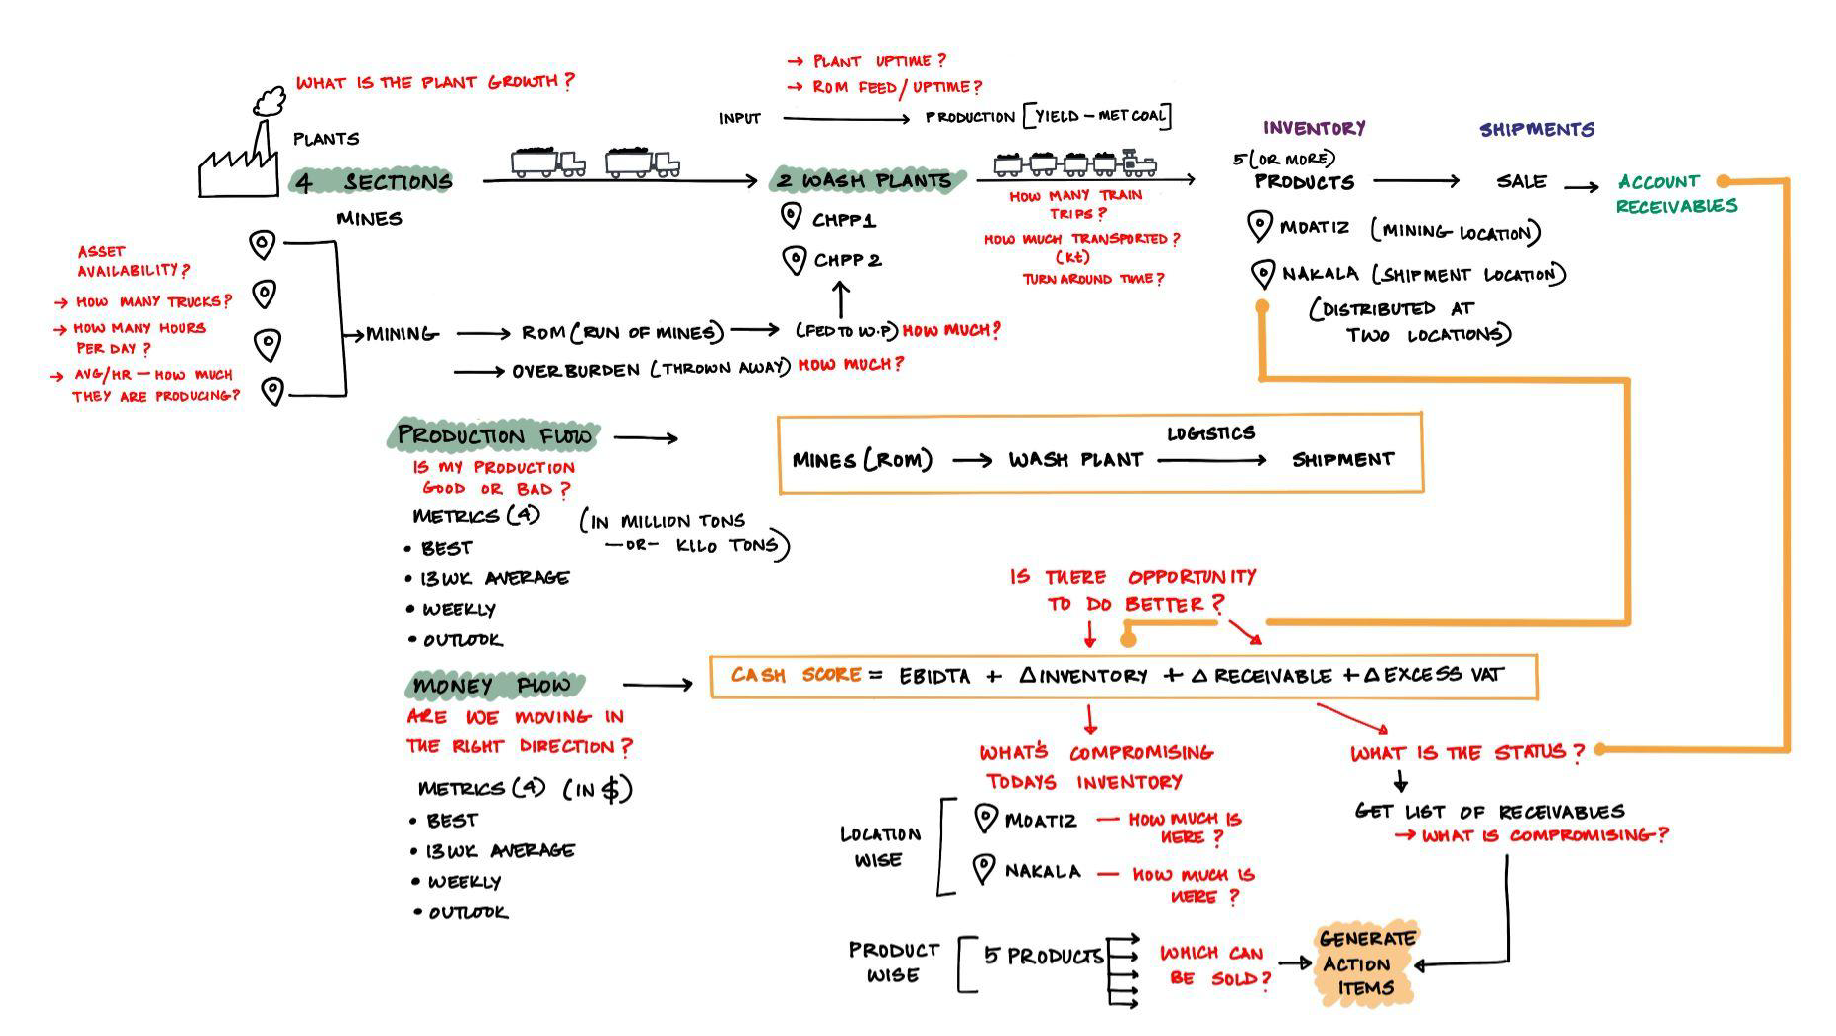 WHAT IS THE PLANT GROWTH?
PLANTS
4 SECTIONS
MINES
→ PLANT UPTIME?
→ ROM FEED/UPTIME?
INPUT
PRODUCTION [YIELD - MET COAL]
2 WASH PLANTS
CHPP1
CHPP2
HOW MANY TRAIN
TRIPS?
HOW MUCH TRANSPORTED?
(Kt)
TURN AROUND TIME?
INVENTORY
5 (OR MORE)
PRODUCTS
SHIPMENTS
SALE
ACCOUNT
RECEIVABLES
MOATIZ (MINING LOCATION)
NAKALA (SHIPMENT LOCATION)
(DISTRIBUTED AT
TWO LOCATIONS)
ASSET
AVAILABILITY?
→ HOW MANY TRUCKS?
→ HOW MANY HOURS
PER DAY?
→ AVG/HR - HOW MUCH
THEY ARE PRODUCING?
MINING
ROM (RUN OF MINES)
(FED TO W.P) HOW MUCH?
OVERBURDEN (THROWN AWAY) HOW MUCH?
PRODUCTION FLOW
IS MY PRODUCTION
GOOD OR BAD?
METRICS (4)
(IN MILLION TONS
-OR- KILO TONS)
• BEST
• 13WK AVERAGE
• WEEKLY
• OUTLOOK
LOGISTICS
MINES (ROM) → WASH PLANT → SHIPMENT
IS THERE OPPORTUNITY
TO DO BETTER?
MONEY FLOW
CASH SCORE = EBIDTA + ΔINVENTORY + Δ RECEIVABLE + Δ EXCESS VAT
ARE WE MOVING IN
THE RIGHT DIRECTION?
METRICS (4) (IN $)
• BEST
• 13WK AVERAGE
• WEEKLY
• OUTLOOK
WHAT'S COMPROMISING
TODAYS INVENTORY
LOCATION
WISE
MOATIZ — HOW MUCH IS
HERE?
NAKALA — HOW MUCH IS
HERE?
PRODUCT
WISE
5 PRODUCTS
WHICH CAN
BE SOLD?
WHAT IS THE STATUS?
GET LIST OF RECEIVABLES
→ WHAT IS COMPROMISING?
GENERATE
ACTION
ITEMS